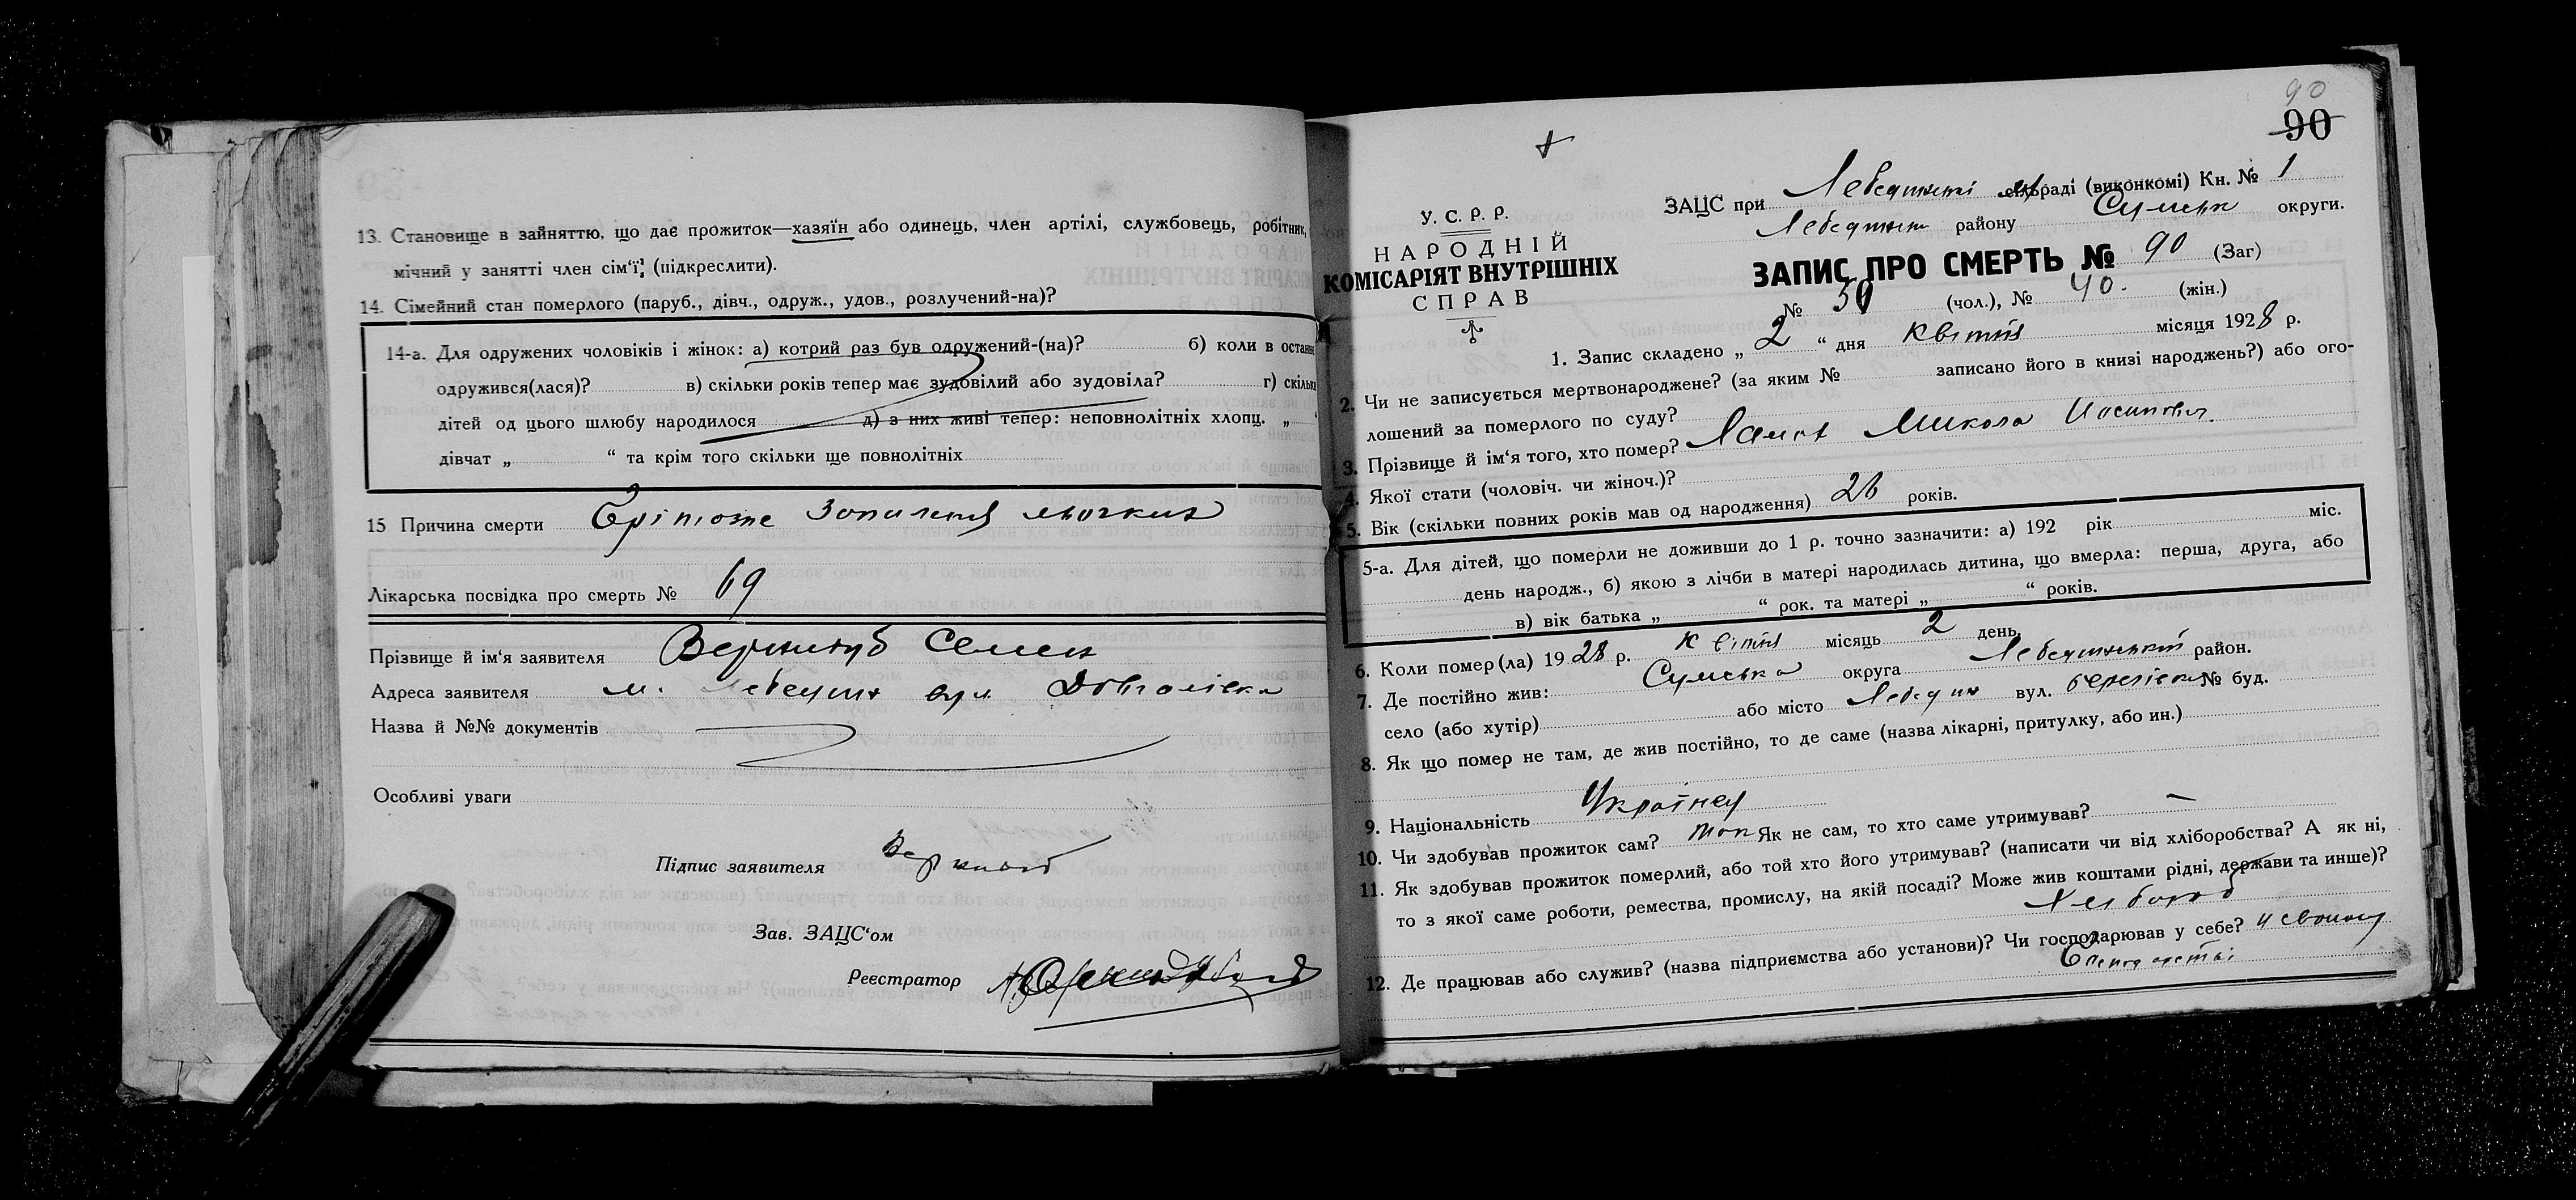 13. Становище в зайняттю, що дає прожиток—хазяїн або одинець, член артілі, службовець, робітник,
мічний у занятті член сім'ї, (підкреслити).
14. Сімейний стан померлого (паруб., дівч., одруж., удов., розлучений-на)?
14-а. Для одружених чоловіків і жінок: а) котрий раз був одружений-(на)? б) коли в останн
одружився(лася)? в) скільки років тепер має зудовілий або зудовіла? г) скільк
дітей од цього шлюбу народилося д) з них живі тепер: неповнолітніх хлопц. „
дівчат „ “ та крім того скільки ще повнолітніх
15 Причина смерти запалення
Лікарська посвідка про смерть № 69
Прізвище й ім'я заявителя Семен
Адреса заявителя м. Лебедин вул.
Назва й №№ документів
Особливі уваги
Підпис заявителя
Зав. ЗАЦС'ом
Реєстратор
90
90
У. С. Р. Р.
НАРОДНІЙ
КОМІСАРІЯТ ВНУТРІШНІХ
СПРАВ
ЗАЦС при Лебединські сільраді (виконкомі) Кн. № 1
Лебединськ району Сумськ округи.
ЗАПИС ПРО СМЕРТЬ № 90 (Заг)
№ 50 (чол.), № 40. (жін.)
1. Запис складено „ 2 “ дня квітня місяця 1928 р.
2. Чи не записується мертвонароджене? (за яким № записано його в книзі народжень?) або ого-
лошений за померлого по суду?
3. Прізвище й ім'я того, хто помер? Микола
4. Якої стати (чоловіч. чи жіноч.)?
5. Вік (скільки повних років мав од народження) 26 років.
5-а. Для дітей, що померли не доживши до 1 р. точно зазначити: а) 192 рік міс.
день народж., б) якою з лічби в матері народилась дитина, що вмерла: перша, друга, або
в) вік батька „ “ рок. та матері „ “ років.
6. Коли помер(ла) 1928 р. квітня місяць 2 день
7. Де постійно жив: Сумська округа Лебединський район.
село (або хутір) або місто Лебедин вул. № буд.
8. Як що помер не там, де жив постійно, то де саме (назва лікарні, притулку, або ин.)
9. Національність Українец
10. Чи здобував прожиток сам? так Як не сам, то хто саме утримував? –
11. Як здобував прожиток померлий, або той хто його утримував? (написати чи від хліборобства? А як ні,
то з якої саме роботи, ремества, промислу, на якій посаді? Може жив коштами рідні, держави та инше)?
Хлібороб
12. Де працював або служив? (назва підприємства або установи)? Чи господарював у себе? в своему